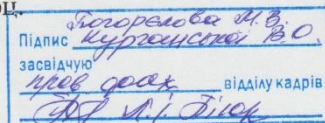 оц.
Погорєлова М.В.
Підпис Курганської В.О.
засвідчую
пров фах відділу кадрів